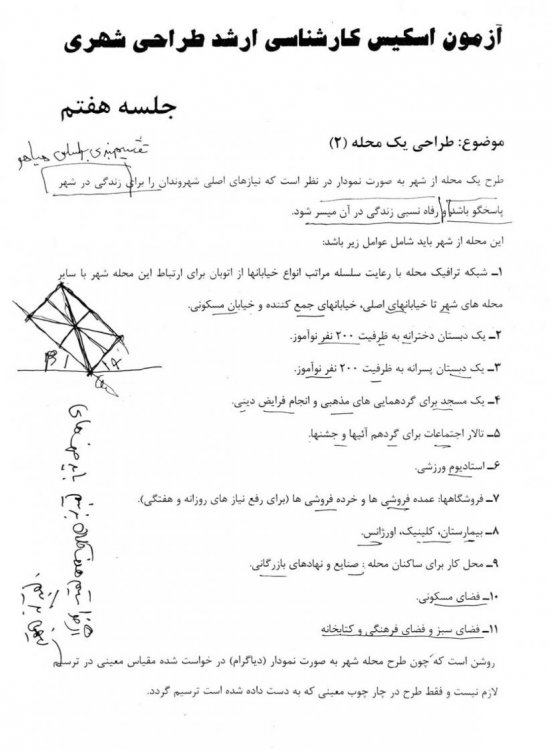 آزمون اسکیس کارشناسی ارشد طراحی شهری
جلسه هفتم
موضوع: طراحی یک محله (۲)
طرح یک محله از شهر به صورت نمودار در نظر است که نیازهای اصلی شهروندان را برای زندگی در شهر
پاسخگو باشد و رفاه نسبی زندگی در آن میسر شود.
این محله از شهر باید شامل عوامل زیر باشد:
۱ـ شبکه ترافیک محله با رعایت سلسله مراتب انواع خیابانها از اتوبان برای ارتباط این محله شهر با سایر
محله های شهر تا خیابانهای اصلی، خیابانهای جمع کننده و خیابان مسکونی.
۲ـ یک دبستان دخترانه به ظرفیت ۲۰۰ نفر نوآموز.
۳ـ یک دبستان پسرانه به ظرفیت ۲۰۰ نفر نوآموز.
۴ـ یک مسجد برای گردهمایی های مذهبی و انجام فرایض دینی.
۵ـ تالار اجتماعات برای گردهم آئیها و جشنها.
۶ـ استادیوم ورزشی.
۷ـ فروشگاهها: عمده فروشی ها و خرده فروشی ها (برای رفع نیاز های روزانه و هفتگی).
۸ـ بیمارستان، کلینیک، اورژانس.
۹ـ محل کار برای ساکنان محله : صنایع و نهادهای بازرگانی.
۱۰ـ فضای مسکونی.
۱۱ـ فضای سبز و فضای فرهنگی و کتابخانه
روشن است که چون طرح محله شهر به صورت نمودار (دیاگرام) در خواست شده مقیاس معینی در ترسیم
لازم نیست و فقط طرح در چار چوب معینی که به دست داده شده است ترسیم گردد.